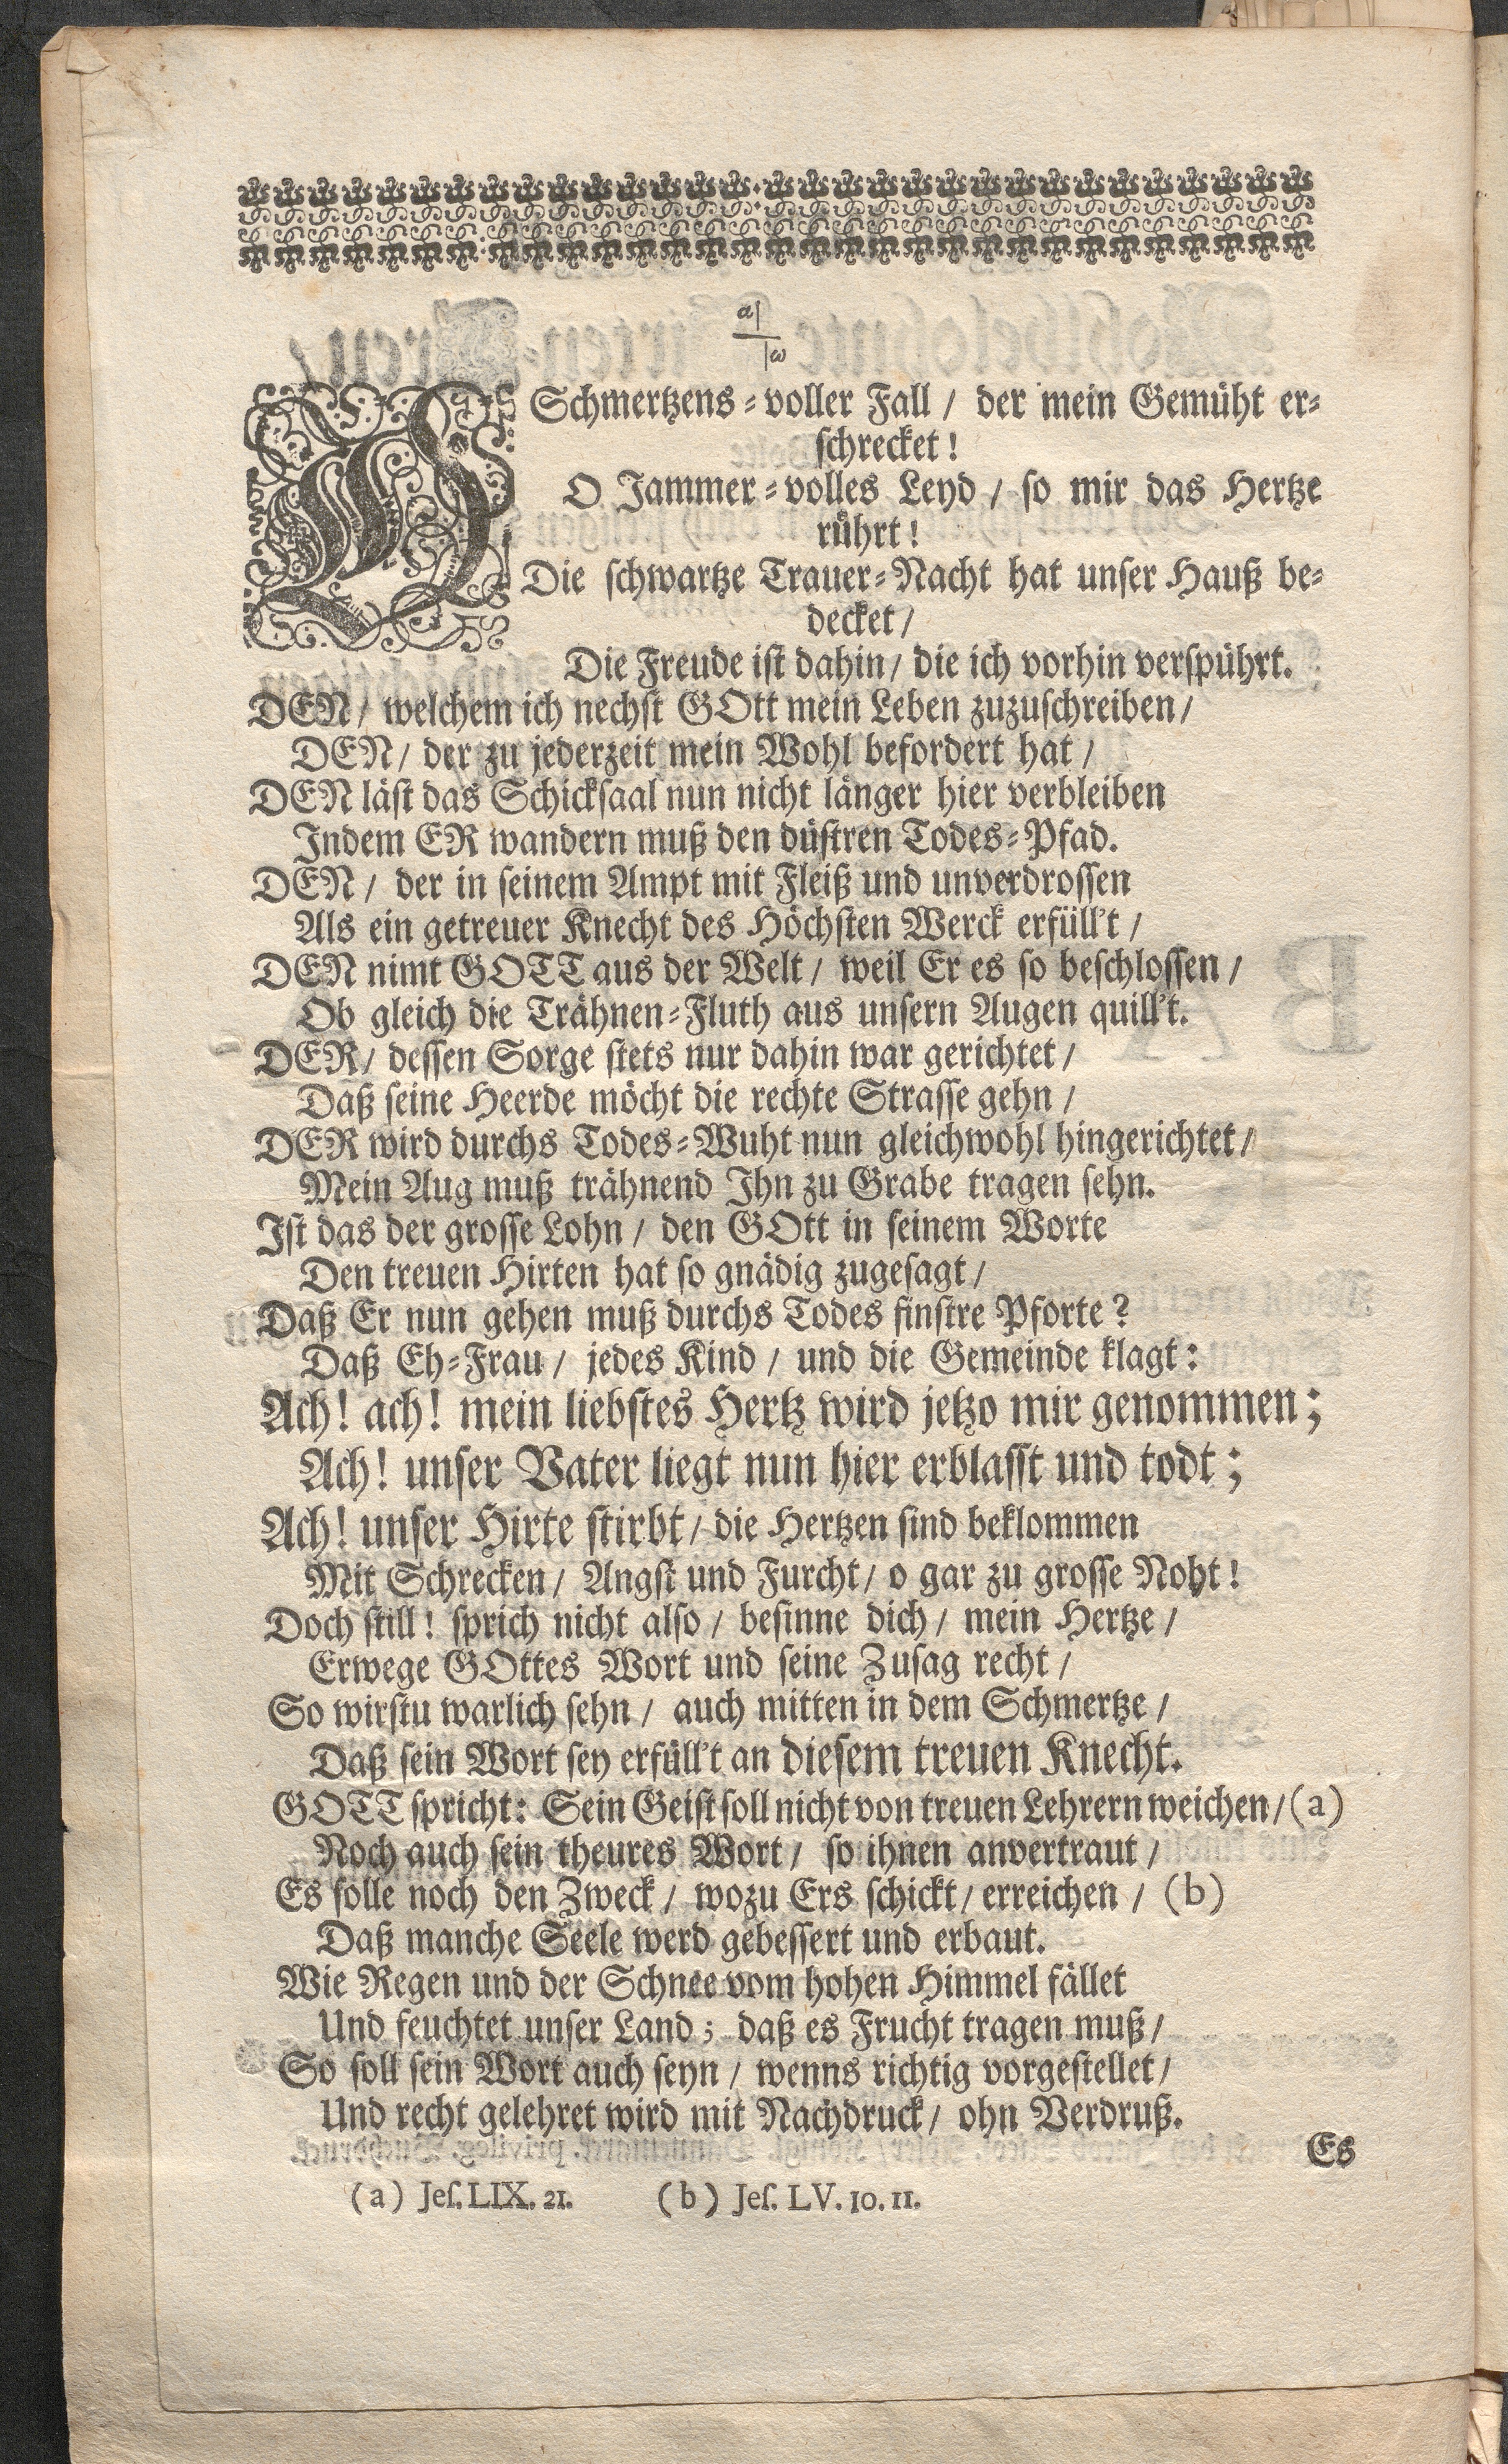 a|
|ω
O Schmertzens-voller Fall / der mein Gemüht er-
schrecket!
O Jammer-volles Leyd / so mir das Hertze
rührt!
Die schwartze Trauer-Nacht hat unser Hauß be-
decket /
Die Freude ist dahin / die ich vorhin verspührt.
DEN / welchem ich nechst GOtt mein Leben zuzuschreiben /
DEN / der zu jederzeit mein Wohl befordert hat /
DEN läst das Schicksaal nun nicht länger hier verbleiben
Indem ER wandern muß den düstren Todes-Pfad.
DEN / der in seinem Ampt mit Fleiß und unverdrossen
Als ein getreuer Knecht des Höchsten Werck erfüll't /
DEN nimt GOTT aus der Welt / weil Er es so beschlossen /
Ob gleich die Trähnen-Fluth aus unsern Augen quill't.
DER / dessen Sorge stets nur dahin war gerichtet /
Daß seine Heerde möcht die rechte Strasse gehn /
DER wird durchs Todes-Wuht nun gleichwohl hingerichtet /
Mein Aug muß trähnend Ihn zu Grabe tragen sehn.
Ist das der grosse Lohn / den GOtt in seinem Worte
Den treuen Hirten hat so gnädig zugesagt /
Daß Er nun gehen muß durchs Todes finstre Pforte?
Daß Eh-Frau / jedes Kind / und die Gemeinde klagt:
Ach! ach! mein liebstes Hertz wird jetzo mir genommen;
Ach! unser Vater liegt nun hier erblasst und todt;
Ach! unser Hirte stirbt / die Hertzen sind beklommen
Mit Schrecken / Angst und Furcht / o gar zu grosse Noht!
Doch still! sprich nicht also / besinne dich / mein Hertze /
Erwege GOttes Wort und seine Zusag recht /
So wirstu warlich sehn / auch mitten in dem Schmertze /
Daß sein Wort sey erfüll't an diesem treuen Knecht.
GOTT spricht: Sein Geist soll nicht von treuen Lehrern weichen / (a)
Noch auch sein theures Wort / so ihnen anvertraut /
Es solle noch den Zweck / wozu Ers schickt / erreichen / (b)
Daß manche Seele werd gebessert und erbaut.
Wie Regen und der Schnee vom hohen Himmel fället
Und feuchtet unser Land; daß es Frucht tragen muß /
So soll sein Wort auch seyn / wenns richtig vorgestellet /
Und recht gelehret wird mit Nachdruck / ohn Verdruß.
Es
(a) Jes. LIX. 21. (b) Jes. LV. 10. 11.